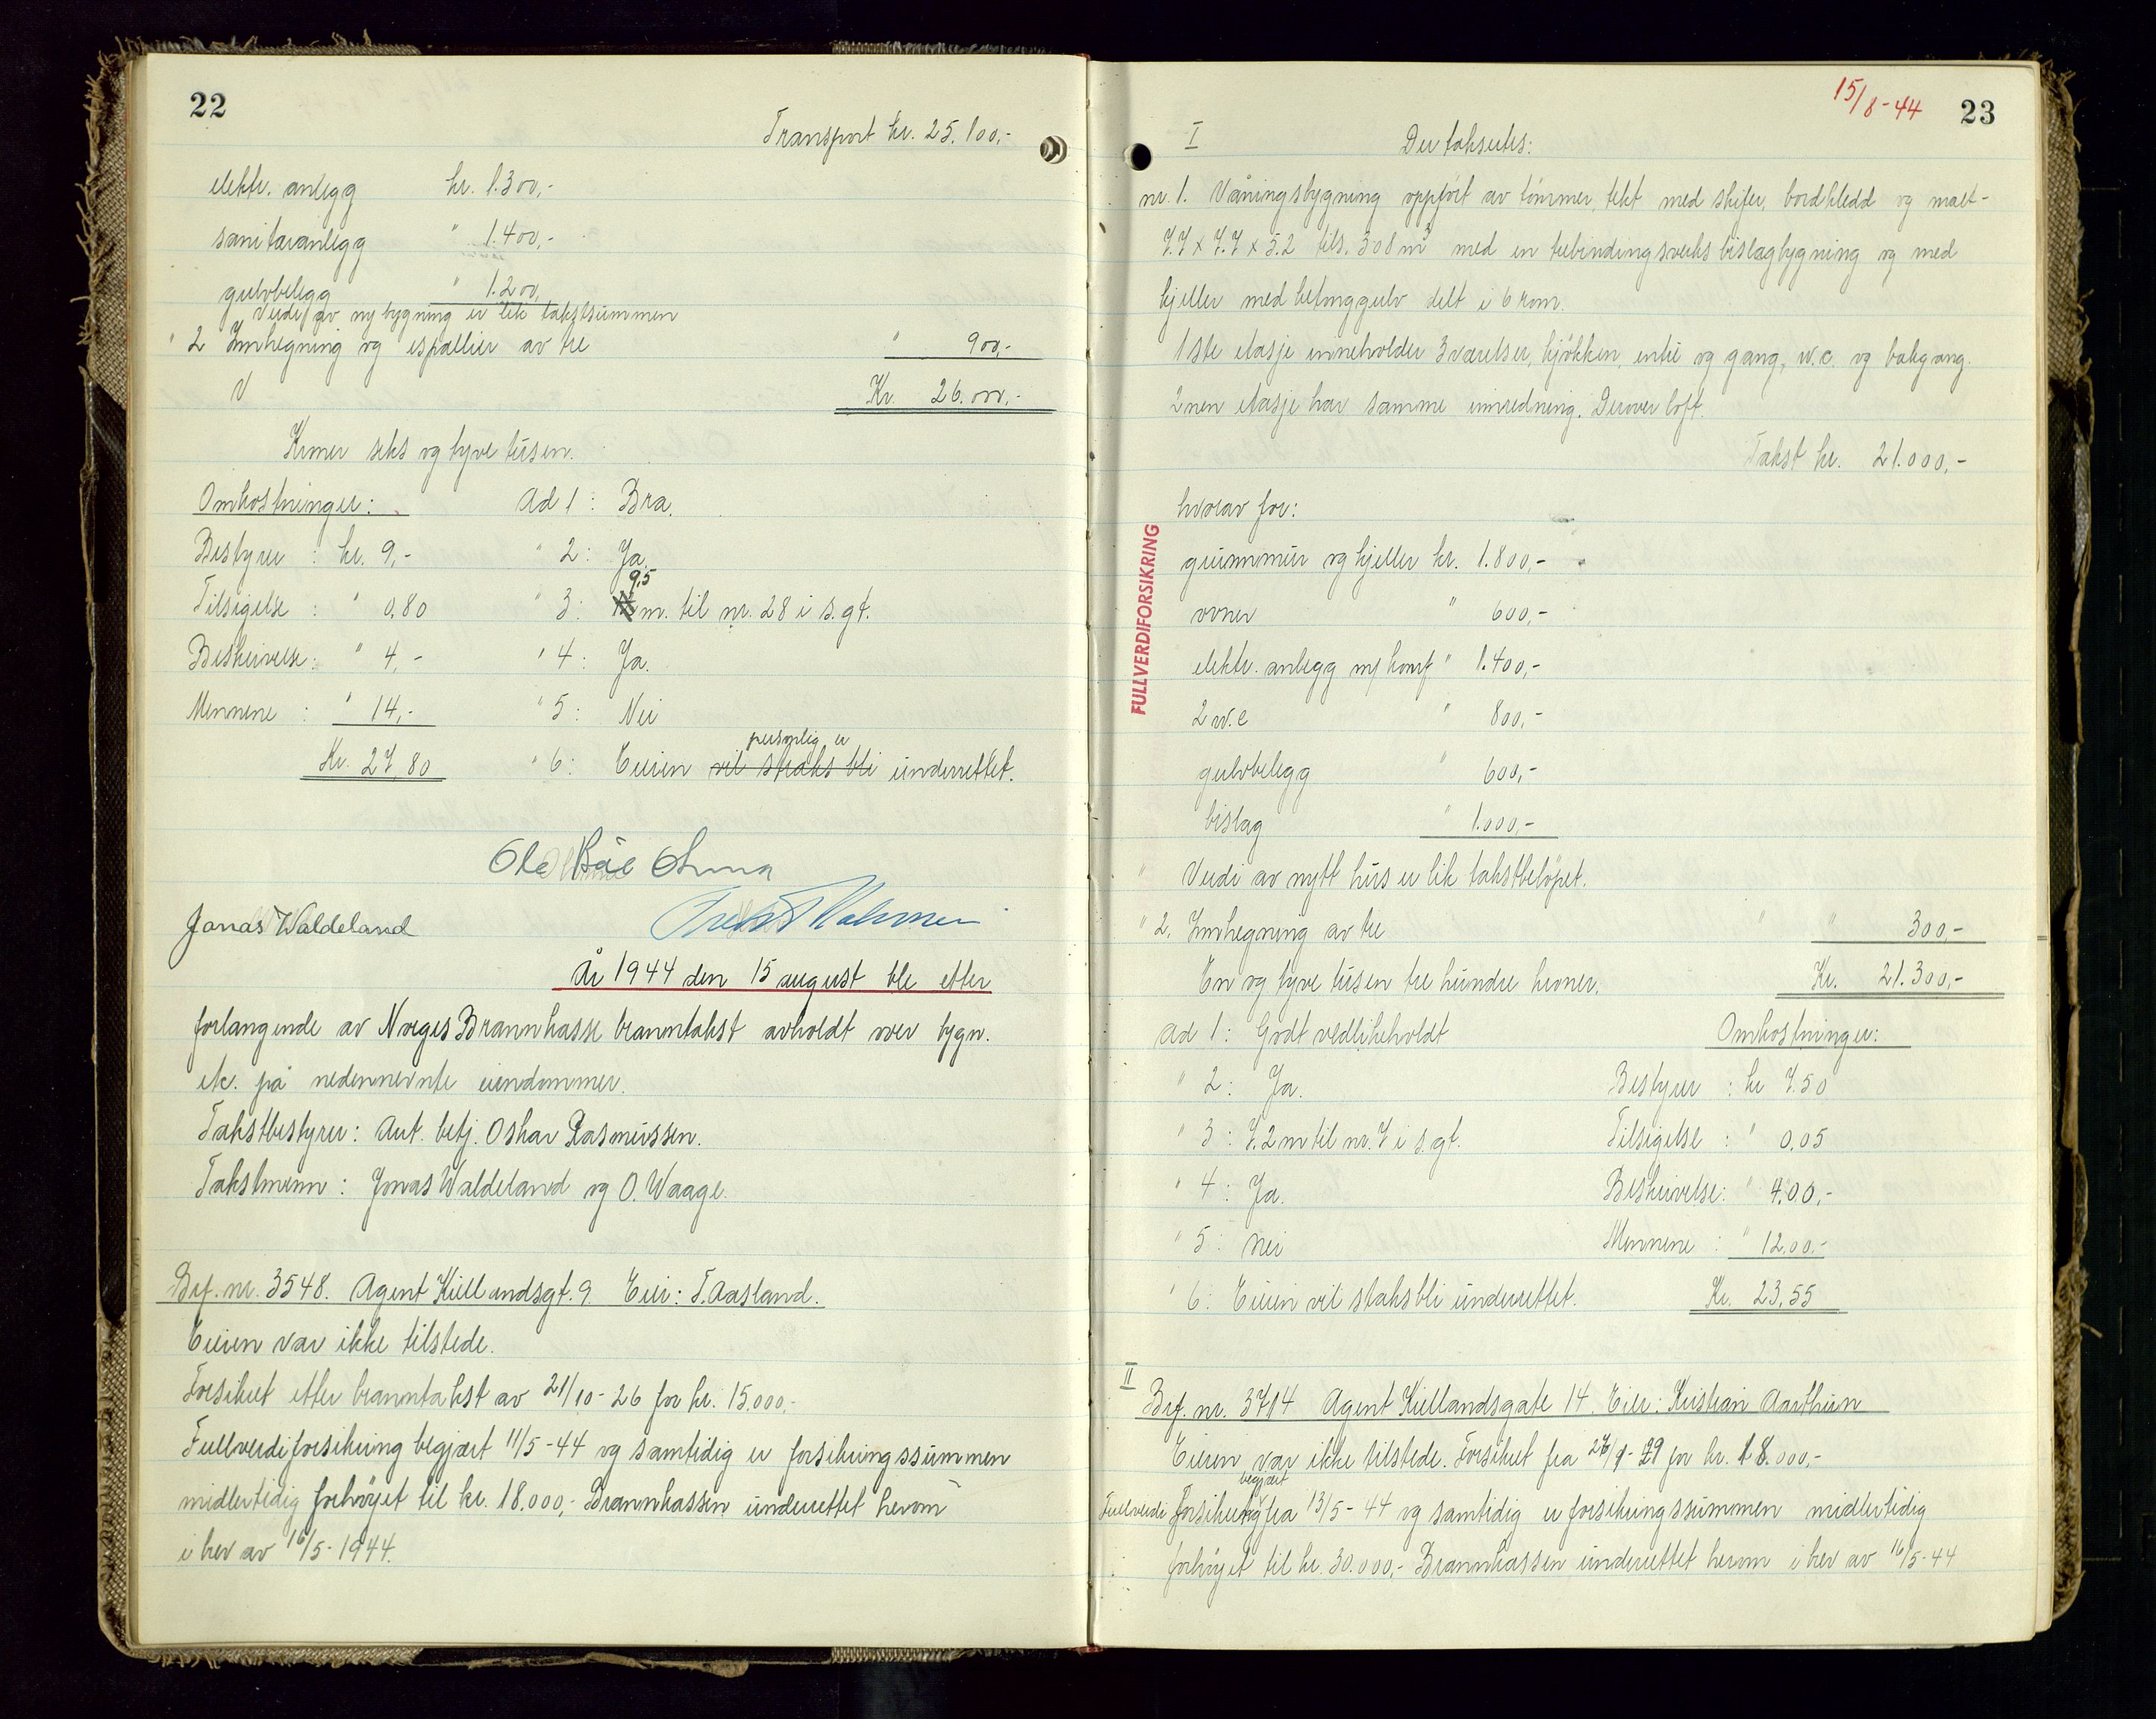 22
Transport kr. 25.100,-
elektr. anlegg kr. 1.300,-
sanitæranlegg " 1.400,-
gulvbelegg " 1.200,-
Verdi av ny bygning er lik takstsummen
" 2 Innhegning og espallier av tre " 900,-
Kr. 26.000,-
Kroner seks og tyve tusen.
Omkostninger: Ad 1: Bra.
Bestyrer : kr. 9,- " 2: Ja.
9,5
Tilsigelse : " 0,80 " 3: m. til nr. 28 i s.gt.
Beskrivelse: " 4,- " 4: Ja.
Mennene : " 14,- " 5: Nei
personlig er
Kr. 27,80 " 6: Eieren vil straks bli underrettet.
Ole
Jonas Waldeland
År 1944 den 15 august ble etter
forlangende av Norges Brannkasse branntakst avholdt over bygn.
etc. på nedennevnte eiendommer.
Takstbestyrer: Aut. betj. Oskar Rasmussen.
Takstmenn: Jonas Waldeland og O. Waage.
Brf. nr. 3548. Agent Kiellandsgt. 9. Eier: T. Aasland.
Eieren var ikke tilstede.
Forsikret etter branntakst av 21/10-26 for kr. 15.000,-
Fullverdiforsikring begjært 11/5-44 og samtidig er forsikringssummen
midlertidig forhöyet til kr. 18.000,- Brannkassen underrettet herom
i brev av 16/5-1944.
15/8-44 23
I Der takseres:
nr. 1. Våningsbygning oppfört av tömmer, tekt med skifer, bordkledd og malt-
7.7 x 7.7 x 5.2 tils. 308 m³ med en trebindingsverks bislagbygning og med
kjeller med betonggulv delt i 6 rom.
1ste etasje inneholder 3 værelser, kjökken, entré og gang, w.c. og bakgang.
2nen etasje har samme innredning. Derover loft.
Takst kr. 21.000,-
hvorav for:
FULLVERDIFORSIKRING
grunnmur og kjeller kr. 1.800,-
ovner " 600,-
elektr. anlegg m/ komf " 1.400,-
2 w.c " 800,-
gulvbelegg " 600,-
bislag " 1.000,-
" Verdi av nytt hus er lik takstbelöpet.
" 2. Innhegning av tre " " 300,-
En og tyve tusen tre hundre kroner. Kr. 21.300,-
Ad 1: Godt vedlikeholdt Omkostninger:
" 2: Ja. Bestyrer : kr 7.50
" 3: 7.2 m til nr. 7 i s.gt. Tilsigelse : " 0,05
" 4: Ja. Beskrivelse: " 4.00,-
" 5: Nei Mennene : " 12,00,-
" 6: Eieren vil straks bli underrettet. Kr. 23,55
II
Brf. nr. 3714 Agent Kiellandsgate 14. Eier: Kristian Aarthun
Eieren var ikke tilstede. Forsikret fra for kr. 18.000,-
begjært
Fullverdi Forsikring fra 13/5-44 og samtidig er forsikringssummen midlertidig
forhöyet til kr. 30.000,- Brannkassen underrettet herom i brev av 16/5-44